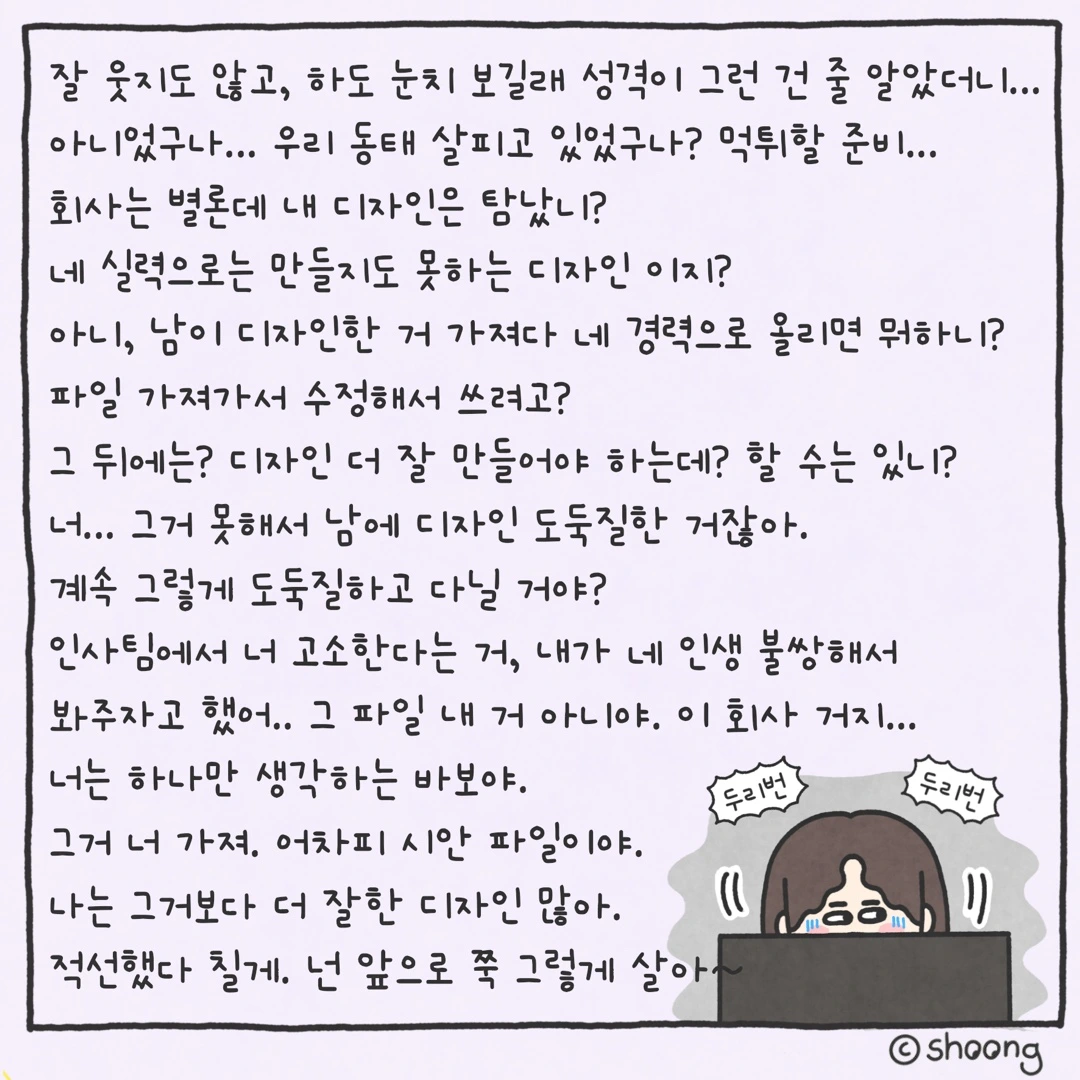 잘 웃지도 않고, 하도 눈치 보길래 성격이 그런 건 줄 알았더니...
아니었구나... 우리 동태 살피고 있었구나? 먹튀할 준비...
회사는 별론데 내 디자인은 탐났니?
네 실력으로는 만들지도 못하는 디자인 이지?
아니, 남이 디자인한 거 가져다 네 경력으로 올리면 뭐하니?
파일 가져가서 수정해서 쓰려고?
그 뒤에는? 디자인 더 잘 만들어야 하는데? 할 수는 있니?
너... 그거 못해서 남에 디자인 도둑질한 거잖아.
계속 그렇게 도둑질하고 다닐 거야?
인사팀에서 너 고소한다는 거, 내가 네 인생 불쌍해서
봐주자고 했어.. 그 파일 내 거 아니야. 이 회사 거지...
너는 하나만 생각하는 바보야.
그거 너 가져. 어차피 시안 파일이야.
나는 그거보다 더 잘한 디자인 많아.
적선했다 칠게. 넌 앞으로 쭉 그렇게 살아~
두리번
두리번
©shoong